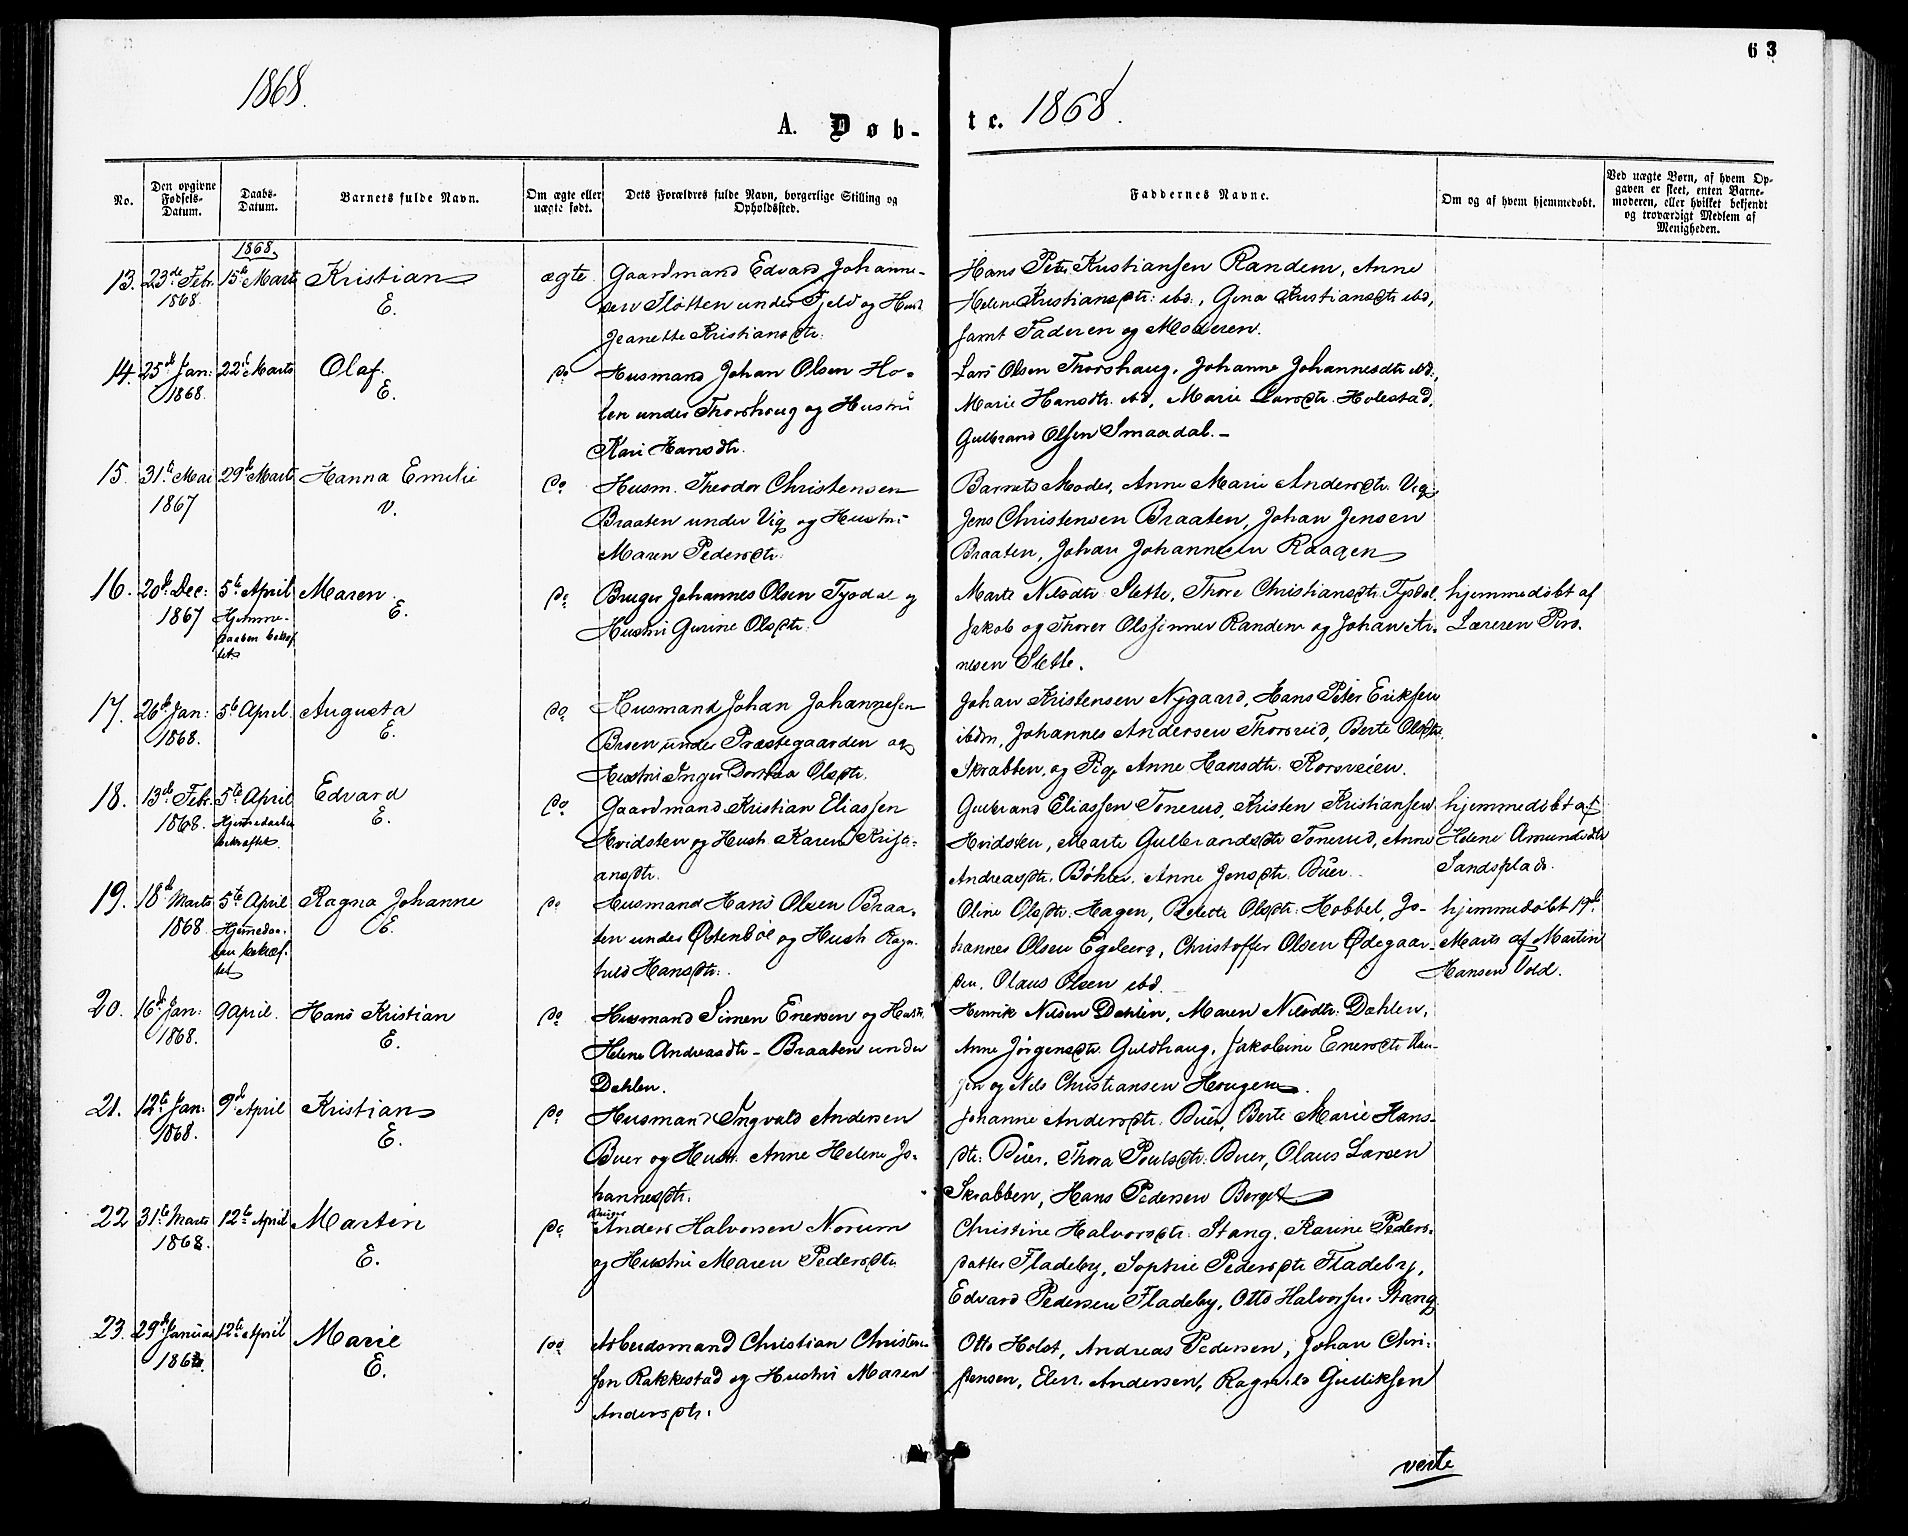 63
1868.
A. Døb-
te. 1868.
No.
Den opgivne
Fødsels-
Datum.
Daabs-
Datum.
Barnets fulde Navn.
Om ægte eller
uægte født.
Dets Forældres fulde Navn, borgerlige Stilling og
Opholdssted.
Faddernes Navne.
Om og af hvem hjemmedøbt.
Ved uægte Børn, af hvem Op-
gaven er skeet, enten Barne-
moderen, eller hvilket bekjendt
og troværdigt Medlem af
Menigheden.
1868.
13. 23de Febr. 1868. 15de Marts Kristian E. ægte
Gaardmand Edvard Johanne-
sen Sløtten under Fjeld og Hust.
Jeanette Kristiansdtr.
Hans Peter Kristiansen Randem, Anne
Helene Kristiansdtr. ibd., Gina Kristiansdtr ibd,
samt Faderen og Moderen.
14. 25d Jan: 1868. 22d Marts Olaf. E. do
Husmand Johan Olsen Ho-
len under Thorshoug og Hustru
Kari Hansdtr.
Lars Olsen Thorshaug, Johanne Johannesdtr ibd.,
Marie Hansdtr. ibd, Marie Larsdtr. Holestad,
Gulbrand Olsen Smaadal. –
15. 31te Mai 1867 29d Marts Hanna Emilie V. do
Husm. Theodor Christensen
Braaten under Vig og Hustru
Maren Pedersdtr.
Barnets Moder, Anne Marie Andersdtr. Vig,
Jens Christensen Braaten, Johan Jensen
Braaten, Johan Johannesen Raagen
16. 20d Dec: 1867 5te April Maren. E. do
Hjemme-
daaben bekræf
tet
Bruger Johannes Olsen Tysdal og
Hustru Gurine Olsdtr.
Marte Nilsdtr Slette, Thore Christiansdtr. Tysdal
Jakob og Thorer Olssønner Randem og Johan Ar-
nesen Slette.
hjemmedøbt af
Læreren
17. 26d Jan: 1868. 5te April. Augusta E. do
Husmand Johan Johannesen
Broen under Præstegaarden og
Hustru Inger Dorthea Olsdtr.
Johan Kristensen Nygaard, Hans Peter Eriksen
ibdm, Johannes Andersen Thorsrud, Berte Olsdtr.
Skrabben, og Pige Anne Hansdtr. Korsveien.
18. 13d Febr. 1868. 5te April Edvard E. do
Hjemmedaaben
bekræftet.
Gaardmand Kristian Eliassen
Hvidsten og Hust. Karen Kristi-
ansdtr.
Gulbrand Eliassen Tonerud, Kristen Kristiansen
Hvidsten, Marte Gulbrandsdtr Tonerud, Anne
Andreasdtr. Bøhler, Anne Jensdtr. Buer.
hjemmedøbt af
Helene Amundsdtr
Sandsplads.
19. 18d Marts 1868. 5te April Ragna Johanne E. do
Hjemmedaa-
ben bekræf-
tet
Husmand Hans Olsen Braa-
ten under Østenbøl og Hust. Ragn-
hild Hansdtr.
Oline Olsdtr. Hagen, Olsdtr. Hobbel, Jo-
hannes Olsen Egeberg, Christoffer Olsen Ødegaar-
den, Olaus Olsen ibd
hjemmedøbt 19d
Marts af Martin
Hansen Vold.
20. 16d Jan: 1868. 9 April. Hans Kristian E. do
Husmand Simen Enersen og Hustr.
Helene Andreasdtr – Braaten under
Dahlen.
Henrik Nilsen Dahlen, Maren Nilsdtr. Dahlen,
Anne Jørgensdtr. Guldhaug, Jakobine Enersdtr Hau-
gen og Nils Christiansen Hougen.
21. 12te Jan: 1868. 9d April Kristian E. do
Husmand Ingvald Andersen
Buer og Hustr. Anne Helene Jo-
hannesdtr.
Johanne Andersdtr. Buer, Berte Marie Hans-
dtr. Buer, Thora Poulsdtr. Buer, Olaus Larsen
Skrabben, Hans Pedersen Berget
22 31te Marts 1868. 12te April Martin E. do
Anders Halvorsen Norum
og Hustru Maren Pedersdtr
Christine Halvorsdtr. Stang, Karine Peders-
datter Fladeby, Sophie Pedersdtr Fladeby,
Edvard Pedersen Fladeby, Otto Halvorsen Stang.
23. 29d Januar 186 12te April Marie E. do
Arbeidsmand Christian Christen-
sen Rakkestad og Hustru Maren
Andersdtr.
Otto Holst, Andreas Pedersen, Johan Chri-
stensen, Elen Andersen, Ragnild Gudiksen
verte